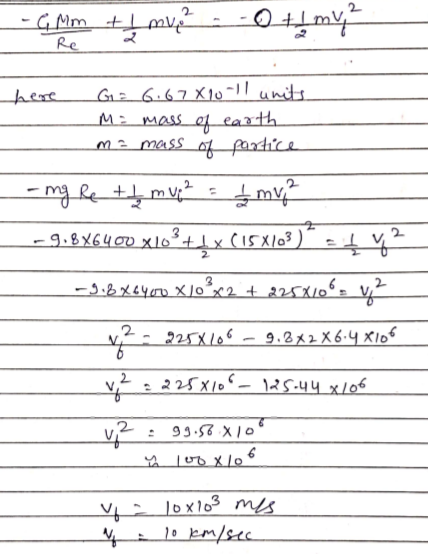 - GMm/Re + 1/2 mVi² = - 0 + 1/2 mVf²
here G = 6.67 X10-11 units
M = mass of earth
m = mass of partice
- mg Re + 1/2 mVi² = 1/2 mVf²
- 9.8X6400 x10³ + 1/2 x (15X10³)² = 1/2 Vf²
- 9.8 x6400 X10³x2 + 225x10⁶ = Vf²
Vf² = 225X10⁶ - 9.8x2X6.4 X10⁶
Vf² = 225X10⁶ - 125.44 x10⁶
Vf² = 99.56 X10⁶
≈ 100 X10⁶
Vf = 10x10³ m/s
Vf = 10 km/sec